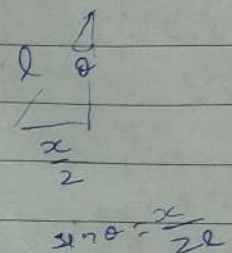 l θ
x/2
sin θ = x/2l